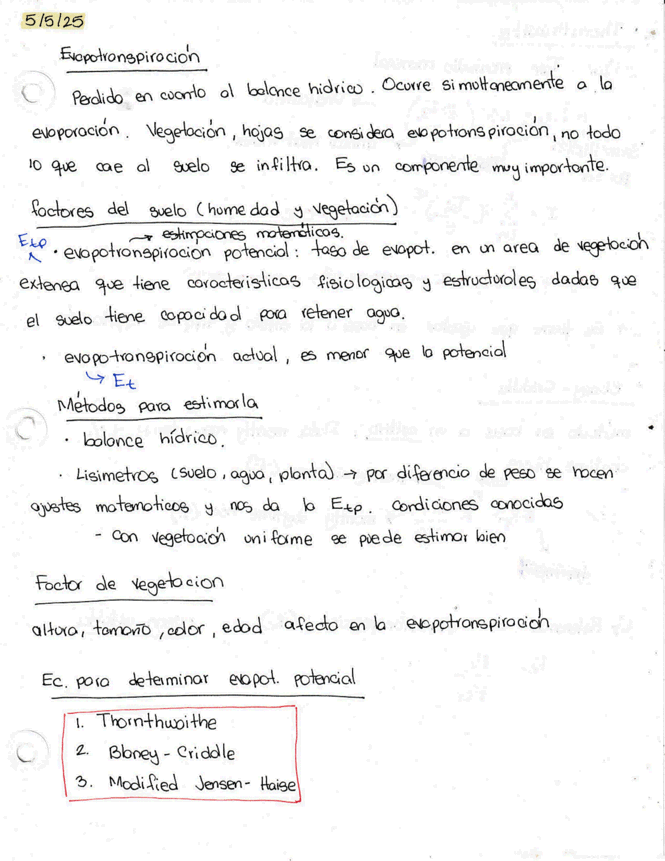 5/5/25
Evapotranspiración
Perdida en cuanto al balance hidrico. Ocurre simultaneamente a la
evaporación. Vegetación, hojas se considera evapotranspiración, no todo
lo que cae al suelo se infiltra. Es un componente muy importante.
factores del suelo (humedad y vegetación)
→ estimaciones matemáticas.
Etp
· evapotranspiración potencial: tasa de evapot. en un area de vegetación
extensa que tiene caracteristicas fisiologicas y estructurales dadas que
el suelo tiene capacidad para retener agua.
· evapotranspiración actual, es menor que la potencial
↳ Et
Métodos para estimarla
· balance hídrico.
· Lisimetros (suelo, agua, planta) → por diferencia de peso se hacen
ajustes matematicos y nos da la Etp. condiciones conocidas
- con vegetación uniforme se puede estimar bien
Factor de vegetacion
altura, tamaño, color, edad afecta en la evapotranspiración
Ec. para determinar evapot. potencial
1. Thornthwaithe
2. Blaney - Criddle
3. Modified Jensen - Haise